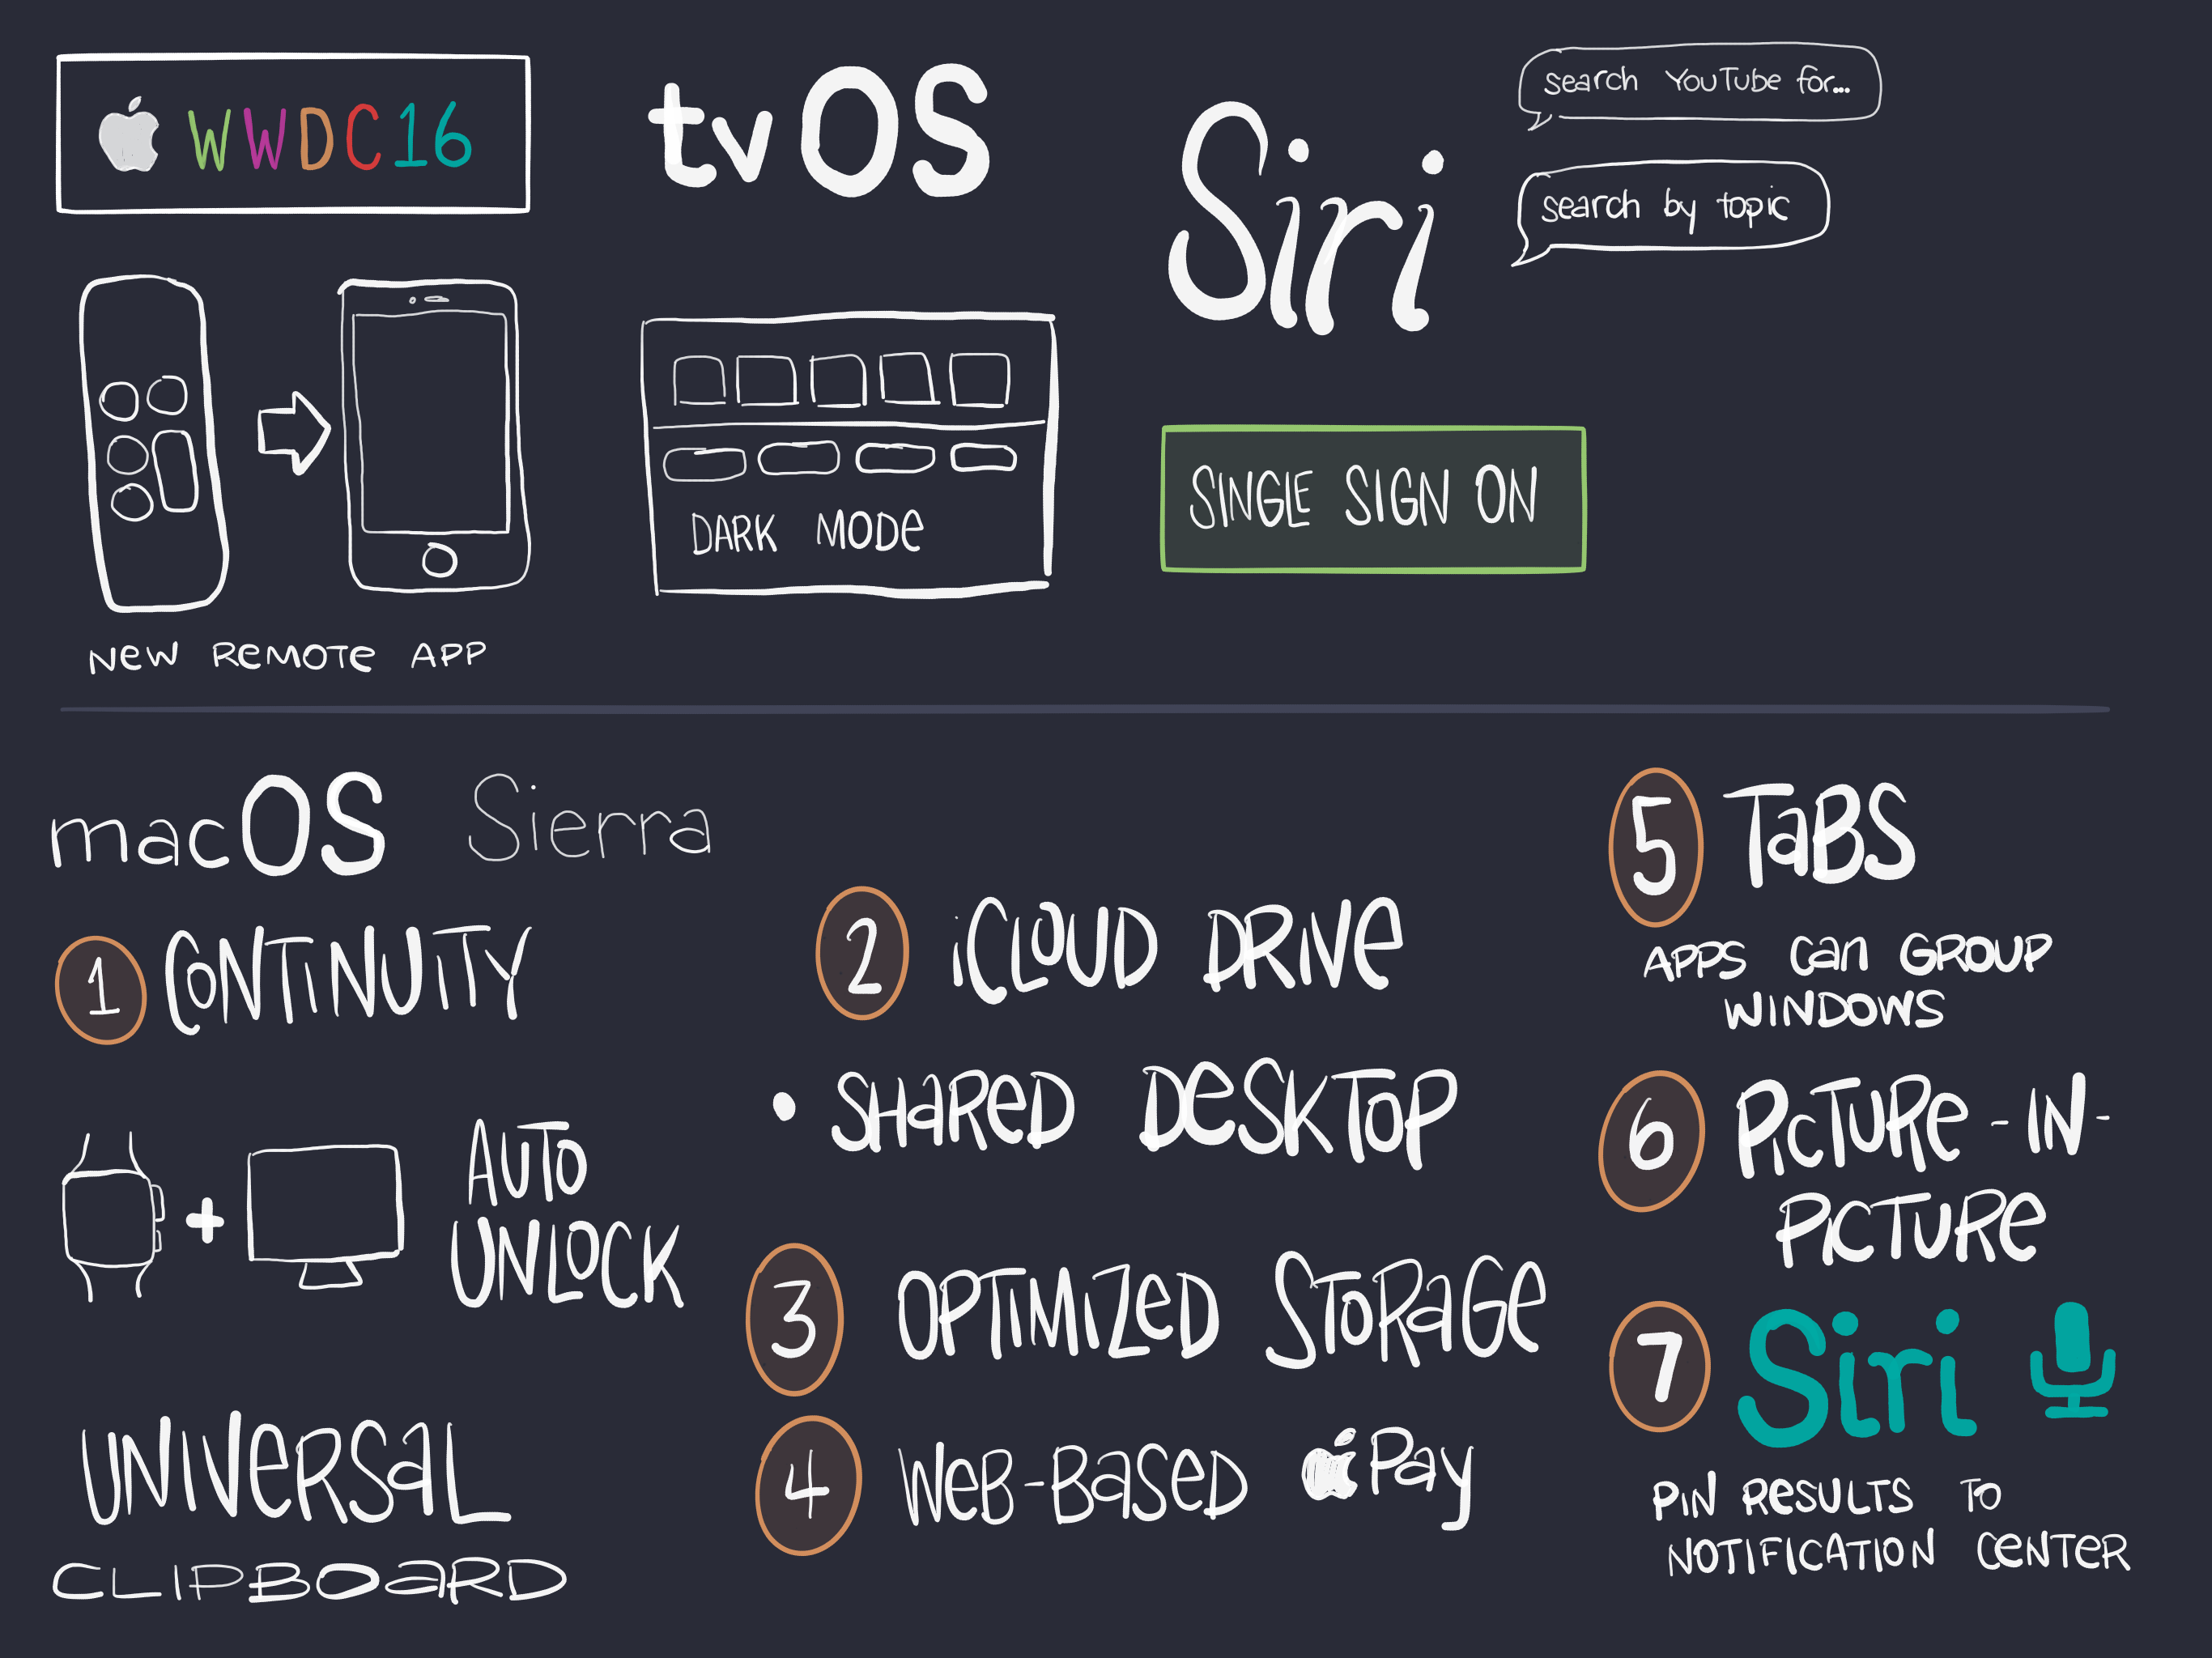 WWDC16
tvOS
Siri
Search YouTube for...
Search by topic
NEW REMOTE APP
DARK MODE
SINGLE SIGN ON
macOS Sierra
1 CONTINUITY
AUTO
UNLOCK
UNIVERSAL
CLIPBOARD
2 iCLOUD DRIVE
• SHARED DESKTOP
3 OPTIMIZED STORAGE
4 WEB-BASED Pay
5 TABS
APPS CAN GROUP
WINDOWS
6 PICTURE-IN-
PICTURE
7 Siri
PIN RESULTS TO
NOTIFICATION CENTER